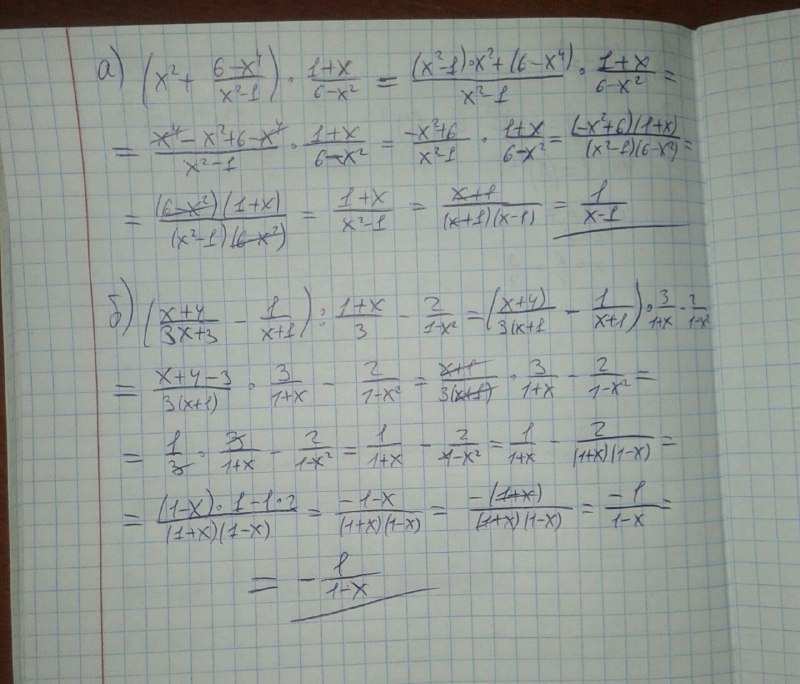 а) (x² + (6-x⁴)/(x²-1)) · (1+x)/(6-x²) = ((x²-1)·x²+(6-x⁴))/(x²-1) · (1+x)/(6-x²) =
= (x⁴-x²+6-x⁴)/(x²-1) · (1+x)/(6-x²) = (-x²+6)/(x²-1) · (1+x)/(6-x²) = ((-x²+6)(1+x))/((x²-1)(6-x²)) =
= ((6-x²)(1+x))/((x²-1)(6-x²)) = (1+x)/(x²-1) = (x+1)/((x+1)(x-1)) = 1/(x-1)
б) ((x+4)/(3x+3) - 1/(x+1)) : (1+x)/3 - 2/(1-x²) = ((x+4)/(3(x+1) - 1/(x+1)) · 3/(1+x) - 2/(1-x²)
= (x+4-3)/(3(x+1)) · 3/(1+x) - 2/(1-x²) = (x+1)/(3(x+1)) · 3/(1+x) - 2/(1-x²) =
= 1/3 · 3/(1+x) - 2/(1-x²) = 1/(1+x) - 2/(1-x²) = 1/(1+x) - 2/((1+x)(1-x)) =
= ((1-x)·1-1·2)/((1+x)(1-x)) = (-1-x)/((1+x)(1-x)) = (-(1+x))/((1+x)(1-x)) = (-1)/(1-x) =
= - 1/(1-x)